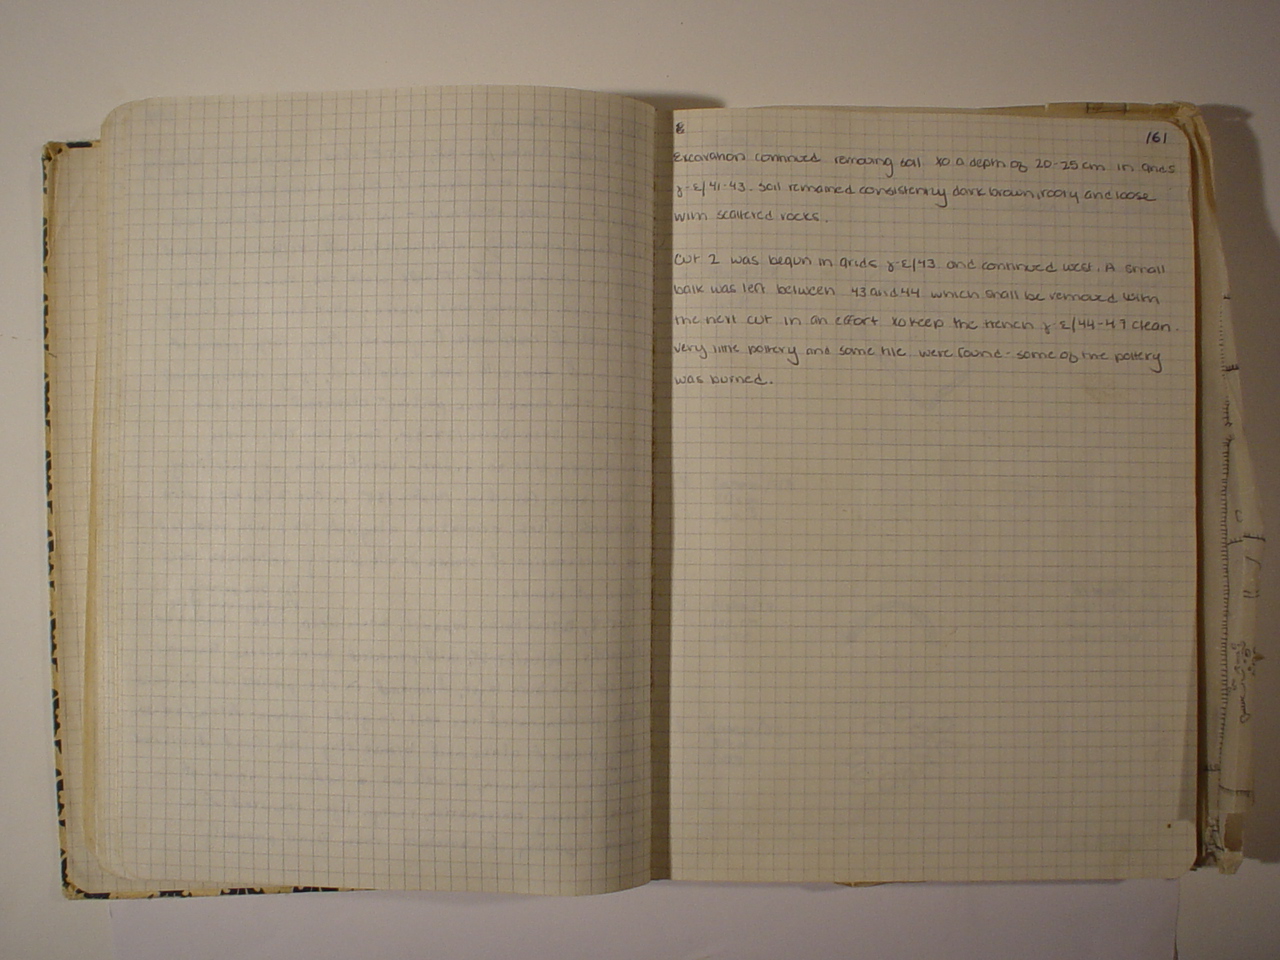 161
Excavation continued removing soil to a depth of 20-25 cm in grids
γ-ε/41-43. Soil remained consistently dark brown, rooty and loose
with scattered rocks.
Cut 2 was begun in grids γ-ε/43 and continued west. A small
balk was left between 43 and 44 which shall be removed with
the next cut in an effort to keep the trench γ-ε/44-47 clean.
Very little pottery and some tile were found - some of the pottery
was burned.